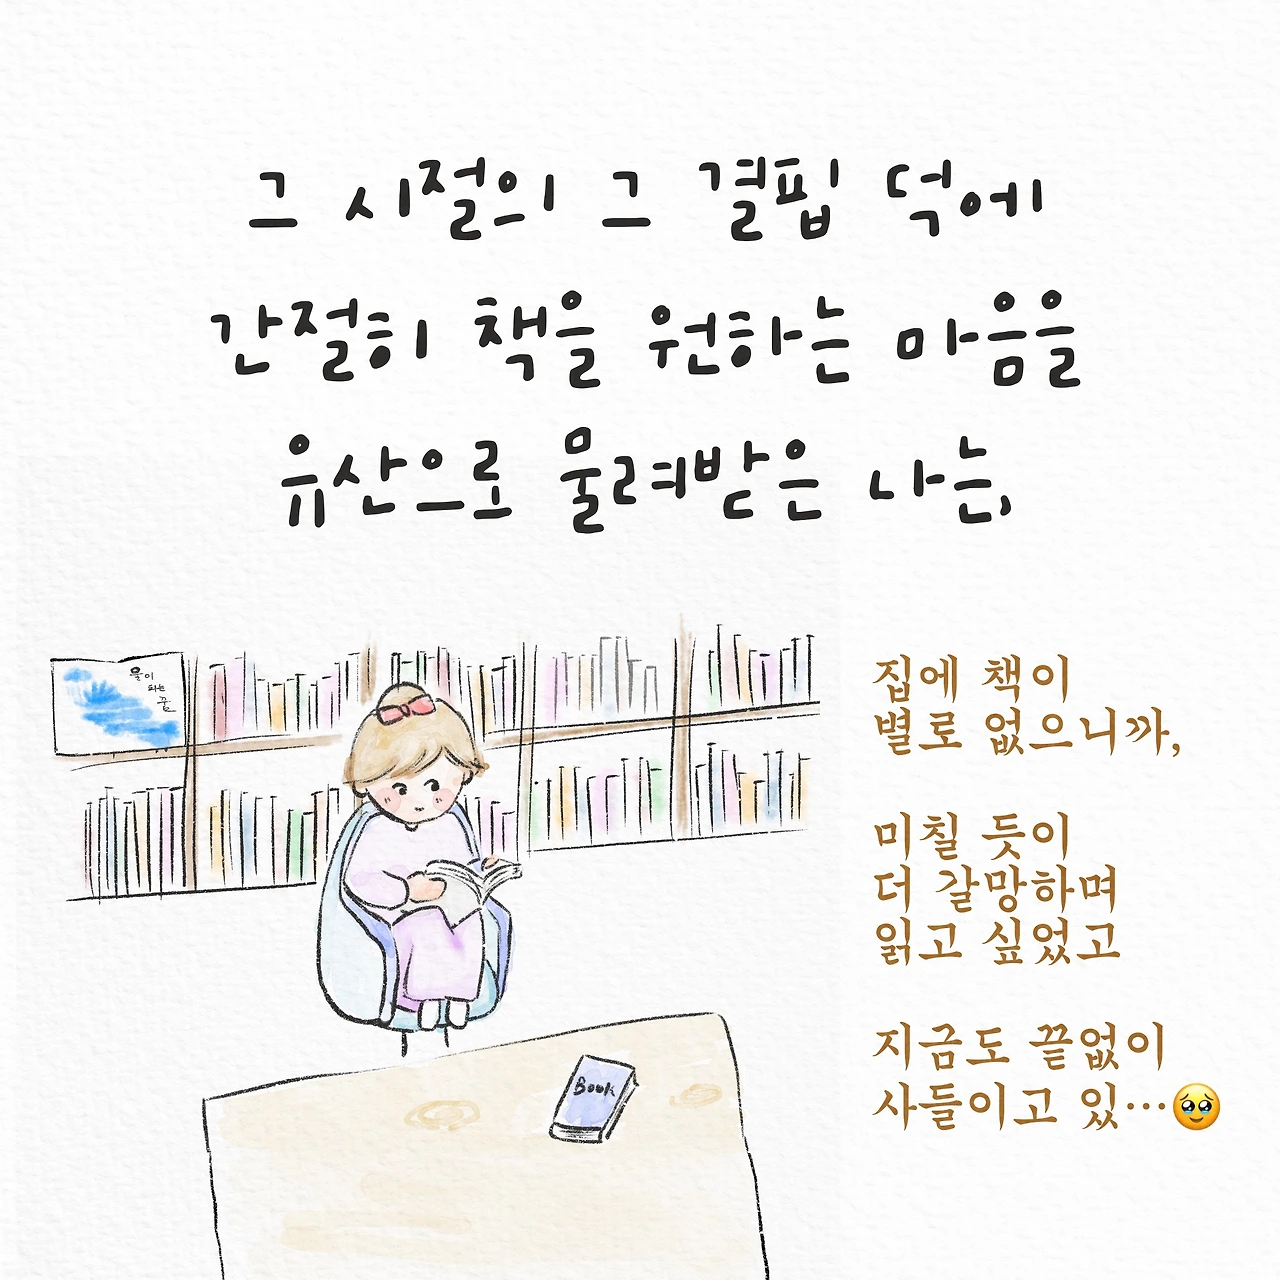 그 시절의 그 결핍 덕에
간절히 책을 원하는 마음을
유산으로 물려받은 나는,
집에 책이
별로 없으니까,
미칠 듯이
더 갈망하며
읽고 싶었고
지금도 끝없이
사들이고 있…🥹
Book